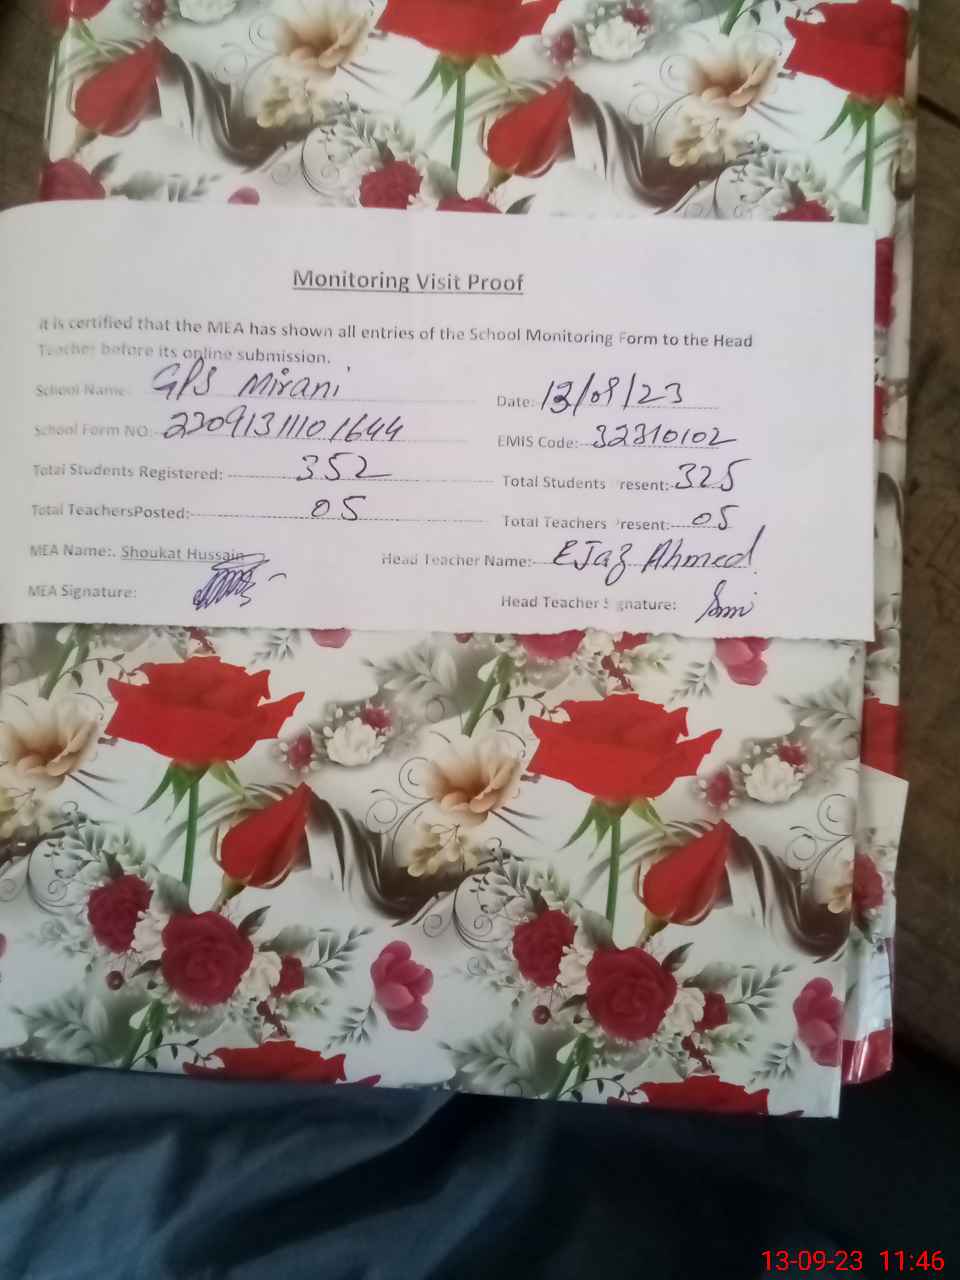 Monitoring Visit Proof
It is certified that the MEA has shown all entries of the School Monitoring Form to the Head
Teacher before its online submission.
School Name: GPS Mirani Date: 13/09/23
School Form NO: 2209131110 1644 EMIS Code: 32310102
Total Students Registered: 352 Total Students Present: 325
Total TeachersPosted: 05 Total Teachers Present: 05
MEA Name:. Shoukat Hussain Head Teacher Name: EJaz Ahmed
MEA Signature: Head Teacher Signature:
13-09-23 11:46